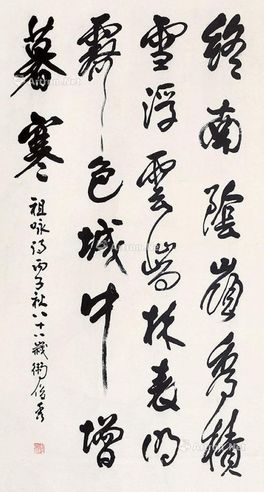 終南陰嶺秀積
雪浮雲端林表明
霽色城中增
暮寒
祖咏詩丙子秋八十八歲衛俊秀